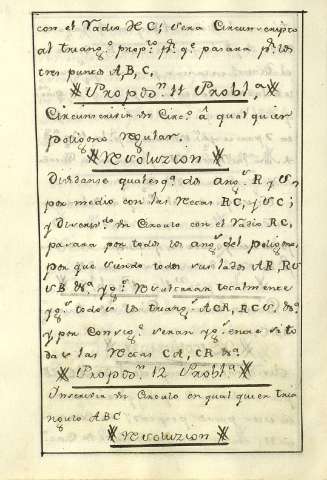 con el Radio HC; sera Circunscripto
al triang.º prop.to p.r q.e pasara p.r los
tres puntos A, B, C.
Propos.n 11 Probl.a
Circunscrivir un Circ.º â qualquier
poligono regular.
Resoluzion
Dividanse qualesq.a dos ang.s R y S,
por medio con las rectas RC, y SC;
y Descriv.do un Circulo con el Radio RC,
pasara por todos los ang.s del poligono,
por que siendo todos sus lados AR, RS
SB &.a yg.s resultaran totalmente
yg.s todos los triang.s ACR, RCS, &.a
y por Consig.e seran yg.s entre si to
das las rectas CA, CR &.a
Propos.n 12 Probl.a
Ynscrivir un Circulo en qualquier trian
gulo ABC
Resoluzion